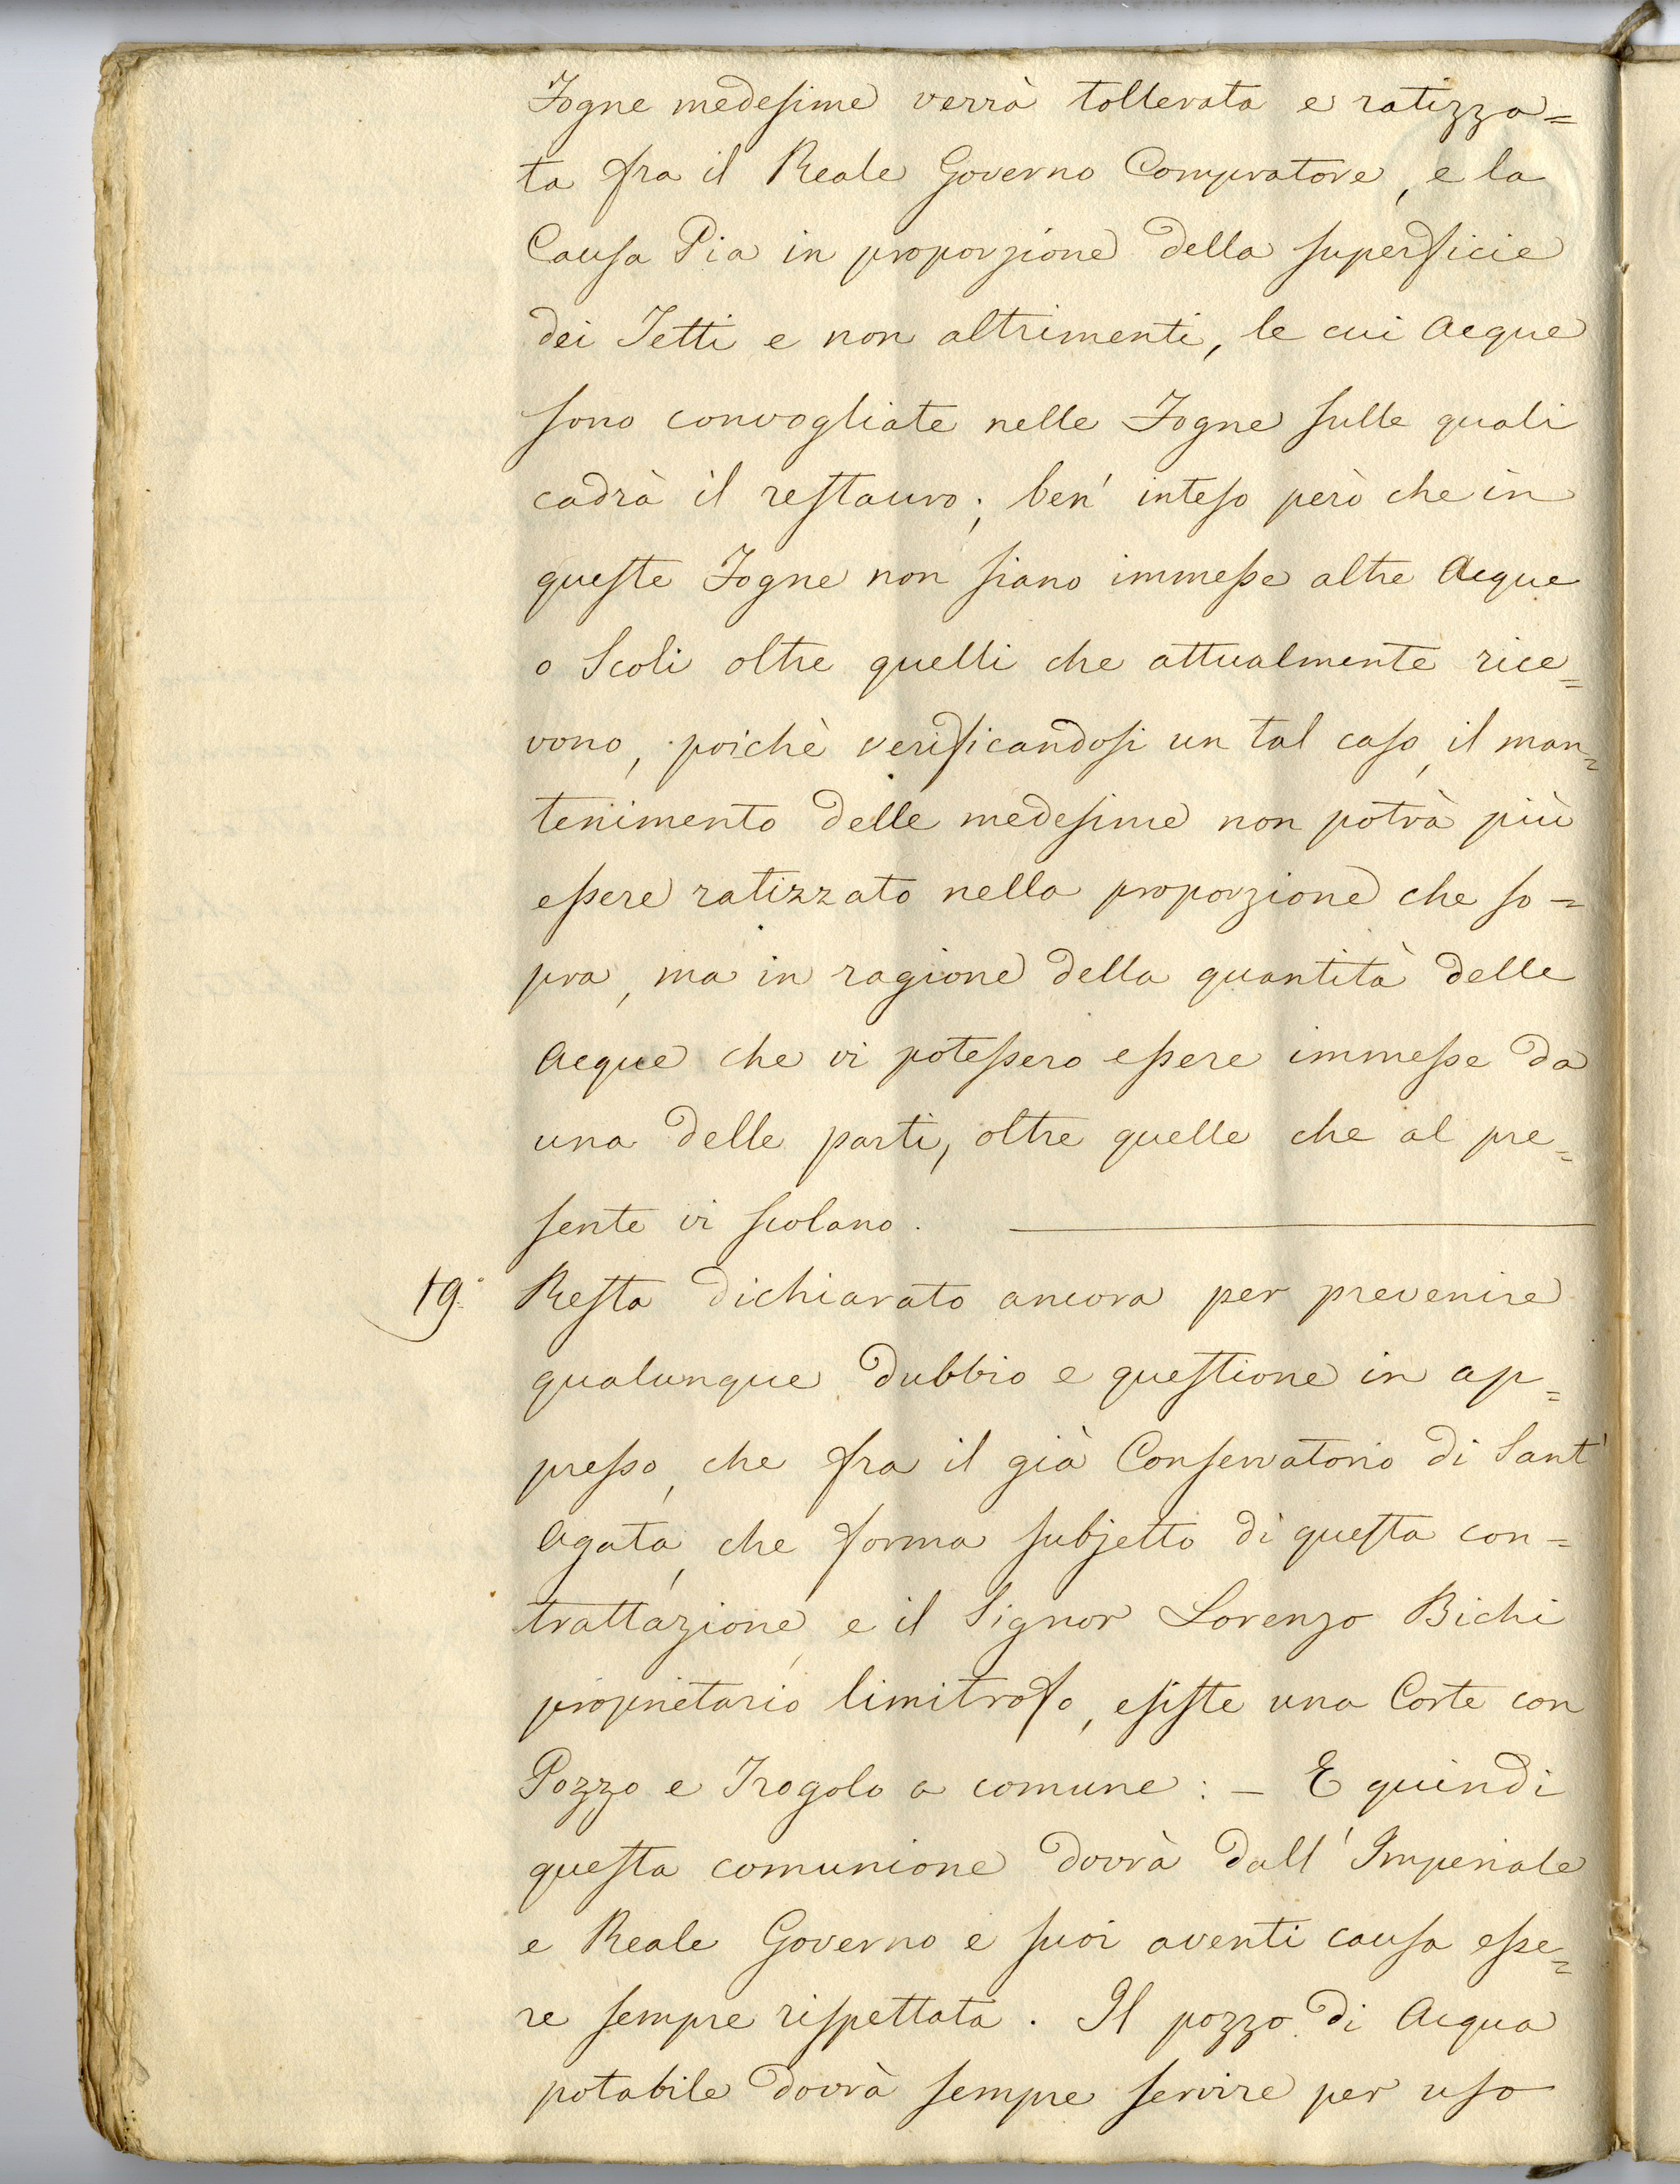 Fogne medesime verrà tollerata e ratizza=
ta fra il Reale Governo Compratore, e la
Causa Pia in proporzione della superficie
dei Tetti e non altrimenti, le cui Acque
sono convogliate nelle Fogne sulle quali
cadrà il restauro; ben' inteso però che in
queste Fogne non siano immesse altre Acque
o Scoli oltre quelli che attualmente rice=
vono, poichè verificandosi un tal caso, il man=
tenimento delle medesime non potrà più
essere ratizzato nella proporzione che so=
pra, ma in ragione della quantità delle
Acque che vi potessero essere immesse da
una delle parti, oltre quelle che al pre=
sente vi scolano.
19.° Resta dichiarato ancora per prevenire
qualunque dubbio e questione in ap=
presso, che fra il già Conservatorio di Sant'
Agata, che forma subjetto di questa con=
trattazione, e il Signor Lorenzo Bichi
proprietario limitrofo, esiste una Corte con
Pozzo e Trogolo a comune: — E quindi
questa comunione dovrà dall' Imperiale
e Reale Governo e suoi aventi causa esse=
re sempre rispettata. Il pozzo di Acqua
potabile dovrà sempre servire per uso